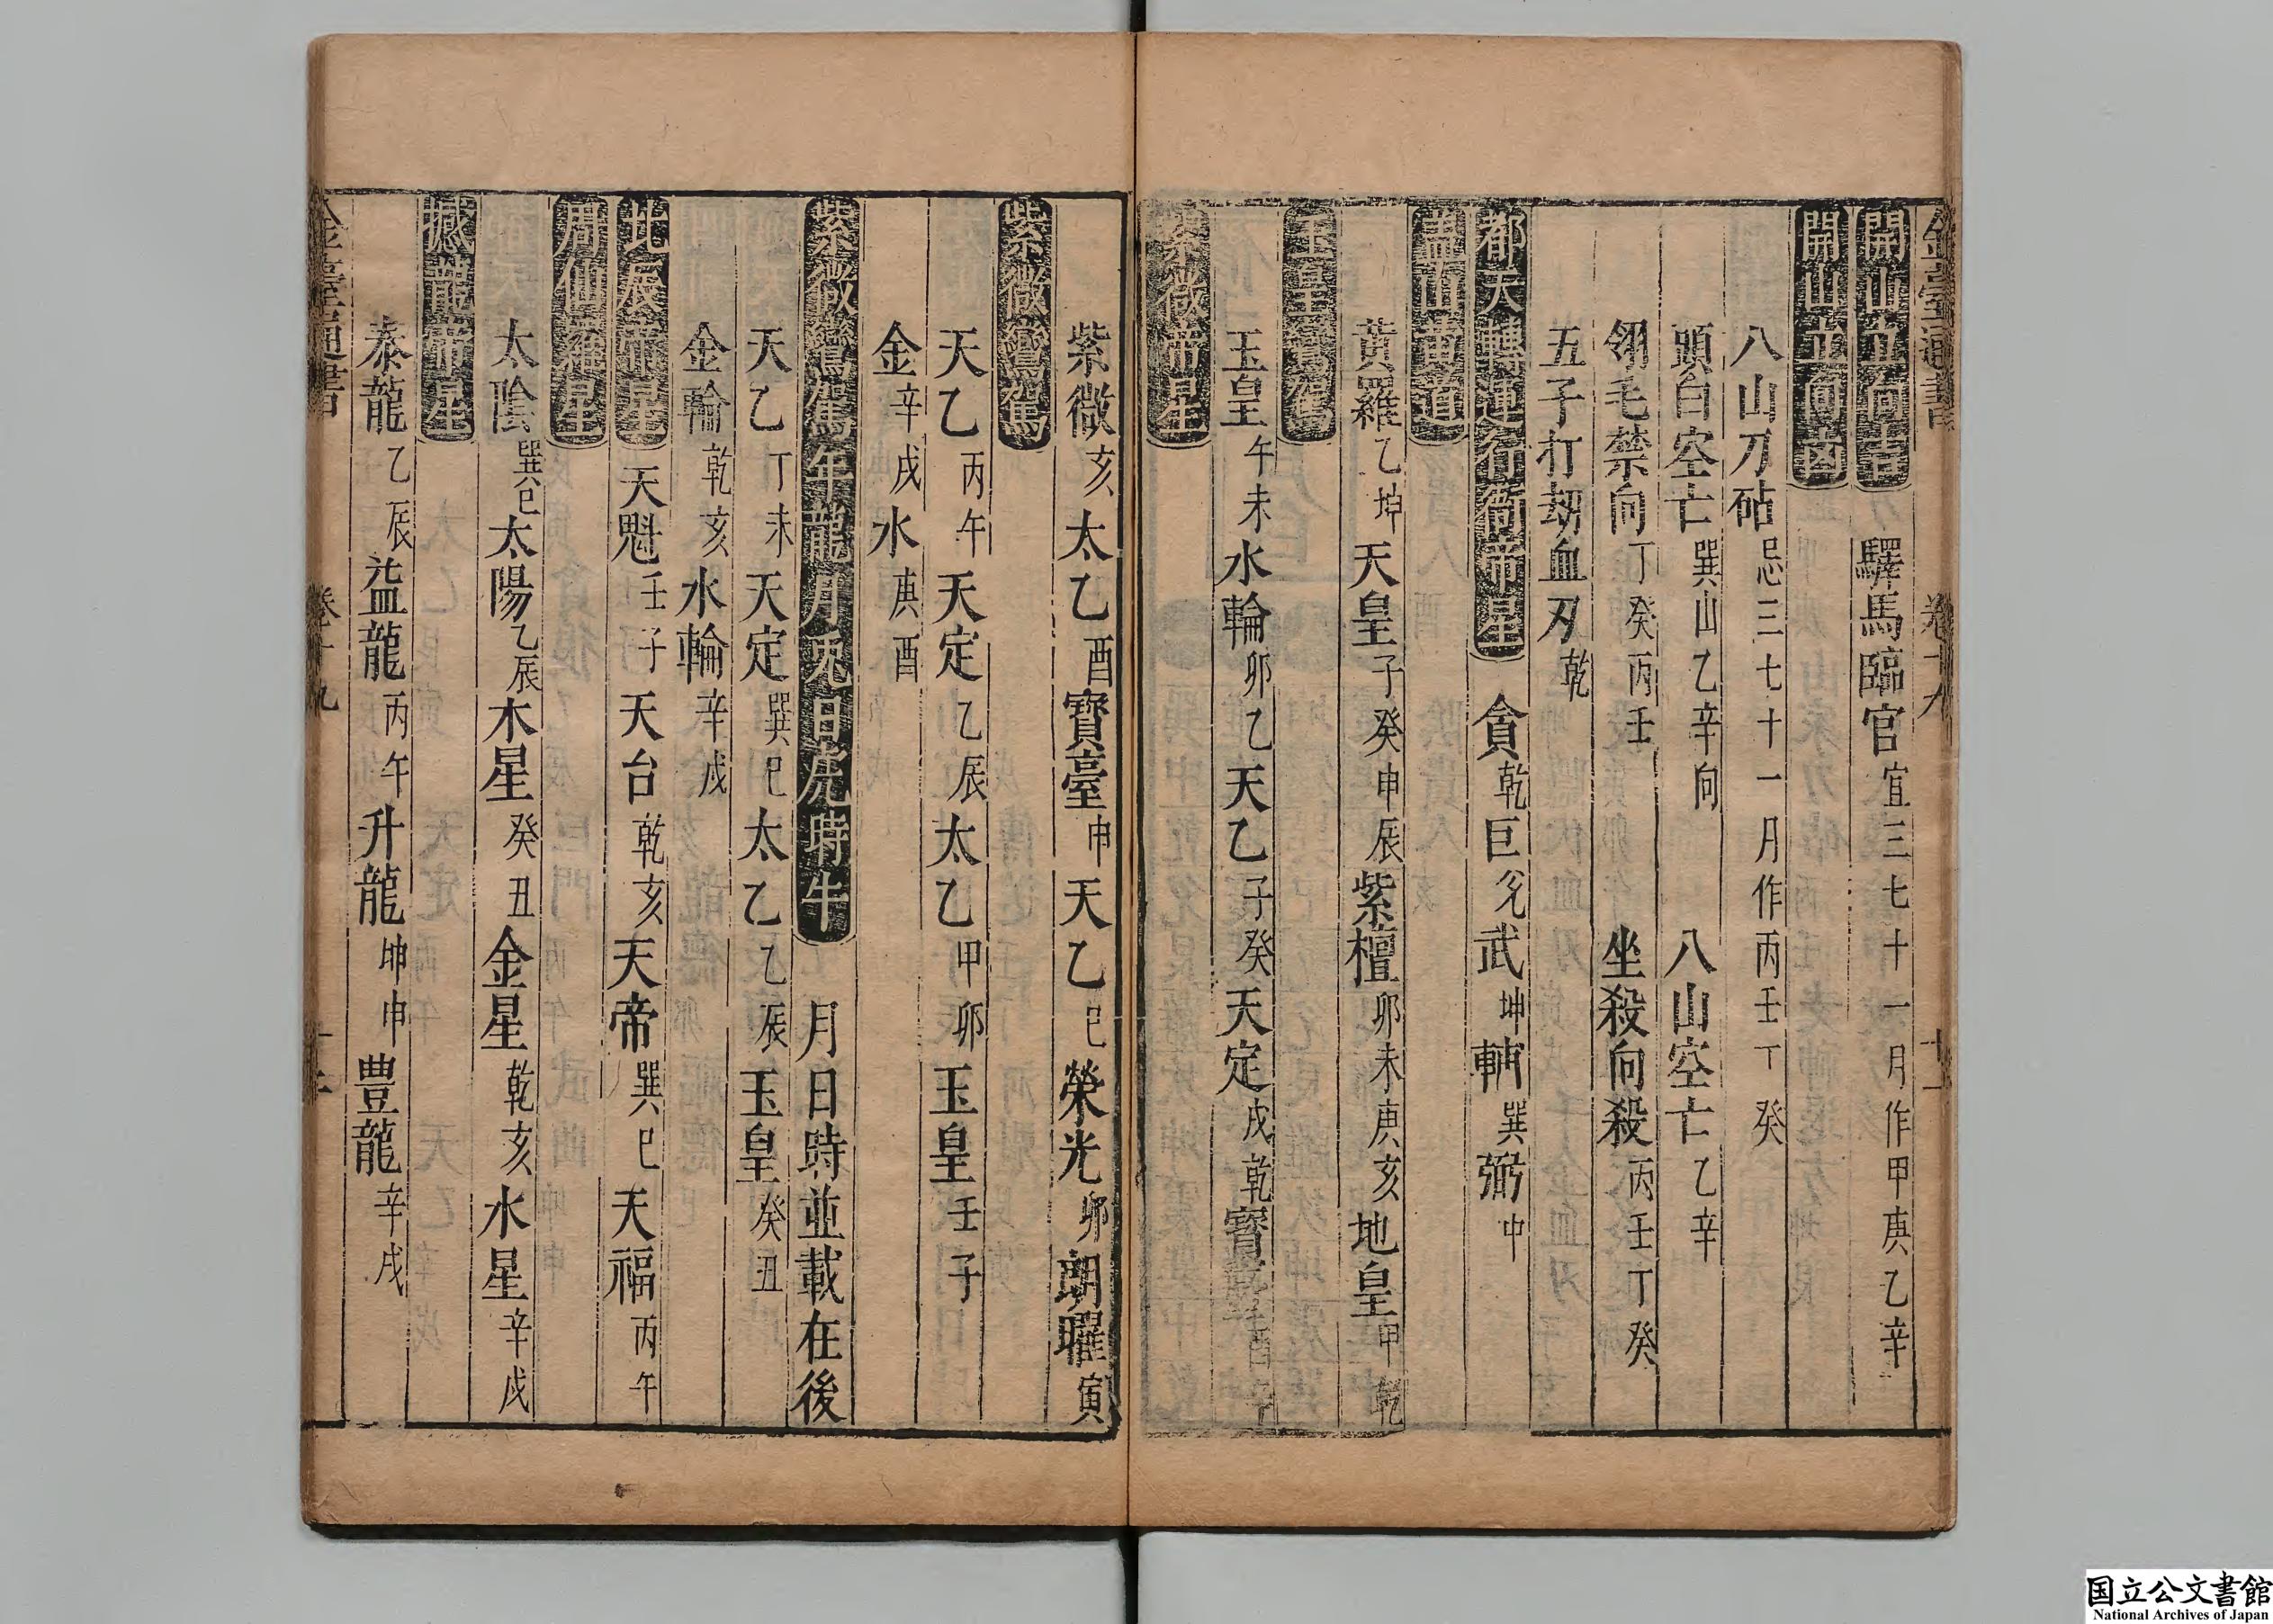 金臺通書 卷十九 十一
開山立向吉 驛馬臨官宜三七十一月作甲庚乙辛
開山立向凶
八山刀砧忌三七十一月作丙壬丁癸
頭白空亡巽山乙辛向 八山空亡乙辛
翎毛禁向丁癸丙壬 坐殺向殺丙壬丁癸
五子打劫血刃乾
都天轉運行衙帝星 貪乾巨兌武坤輔巽弼中
蓋山黃道
黃羅乙坤天皇子癸申辰紫檀卯未庚亥地皇甲乾
玉皇鑾駕
玉皇午未水輪卯乙天乙子癸天定戌乾寶臺酉辛
紫微帝星
紫微亥太乙酉寶臺申天乙巳榮光卯朗曜寅
紫微鸞駕
天乙丙午天定乙辰太乙甲卯玉皇壬子
金辛戌水庚酉
紫微鸞駕年龍月兎日虎時牛 月日時並載在後
天乙丁未天定巽巳太乙乙辰玉皇癸丑
金輪乾亥水輪辛戌
北辰帝星 天魁壬子天台乾亥天帝巽巳天福丙午
周仙羅星
太陰巽巳太陽乙辰木星癸丑金星乾亥水星辛戌
撼龍帝星
泰龍乙辰益龍丙午升龍坤申豊龍辛戌
金臺通書 卷十九
国立公文書館
National Archives of Japan